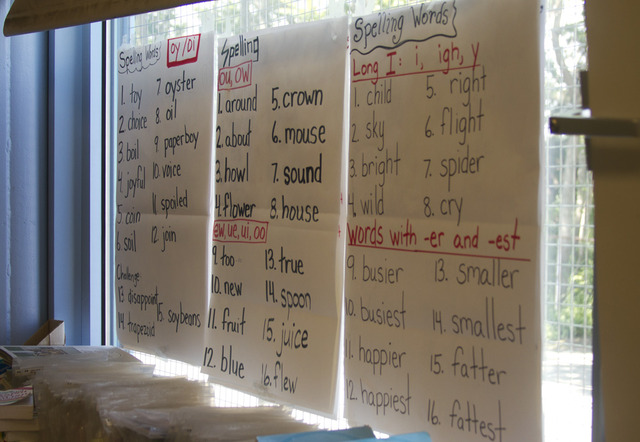 Spelling Words
oy/oi
1. toy 7 oyster
2 choice 8. oil
3 boil 9 paperboy
4 joyful 10. voice
5 coin 11 spoiled
6 soil 12 join
Challenge
13 disappoint
14 trapezoid 15 soybeans
Spelling
ou, ow
1. around 5. crown
2. about 6. mouse
3. howl 7. sound
4. flower 8. house
ew, ue, ui, oo
9. too 13. true
10. new 14. spoon
11. fruit 15. juice
12. blue 16. flew
Spelling Words
Long I: i, igh, y
1. child 5. right
2. sky 6. flight
3. bright 7. spider
4. wild 8. cry
Words with -er and -est
9. busier 13. smaller
10. busiest 14. smallest
11. happier 15. fatter
12. happiest 16. fattest